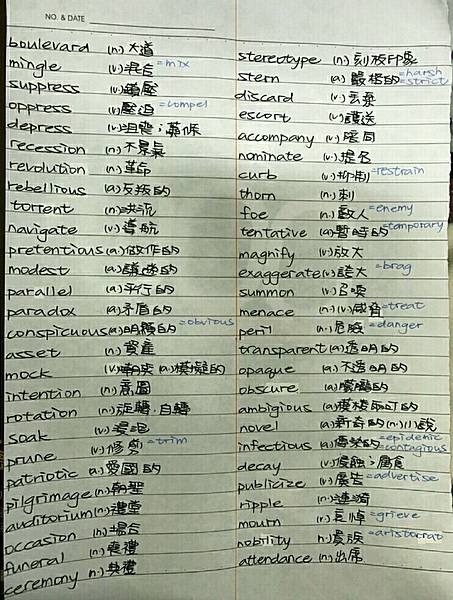 NO. & DATE
boulevard (n.) 大道
mingle (v.) 混合 =mix
suppress (v.) 鎮壓
oppress (v.) 壓迫 =compel
depress (v.) 沮喪;蕭條
recession (n.) 不景氣
revolution (n.) 革命
rebellious (a.) 反叛的
torrent (n.) 洪流
navigate (v.) 導航
pretentious (a.) 做作的
modest (a.) 謙遜的
parallel (a.) 平行的
paradox (a.) 矛盾的
conspicuous (a.) 明顯的 =obvious
asset (n.) 資產
mock (v.) 嘲笑 (a.) 模擬的
intention (n.) 意圖
rotation (n.) 旋轉,自轉
soak (v.) 浸泡
prune (v.) 修剪 =trim
patriotic (a.) 愛國的
pilgrimage (n.) 朝聖
auditorium (n.) 禮堂
occasion (n.) 場合
funeral (n.) 喪禮
ceremony (n.) 典禮
stereotype (n.) 刻板印象
stern (a.) 嚴格的 =harsh =strict
discard (v.) 丟棄
escort (v.) 護送
accompany (v.) 陪同
nominate (v.) 提名
curb (v.) 抑制 =restrain
thorn (n.) 刺
foe (n.) 敵人 =enemy
tentative (a.) 暫時的 =temporary
magnify (v.) 放大
exaggerate (v.) 誇大 =brag
summon (v.) 召喚
menace (n.)(v.) 威脅 =treat
peril (n.) 危險 =danger
transparent (a.) 透明的
opaque (a.) 不透明的
obscure (a.) 朦朧的
ambigious (a.) 模稜兩可的
novel (a.) 新奇的 (n.) 小說
infectious (a.) 傳染的 =epidemic =contagious
decay (v.) 侵蝕;腐食
publicize (v.) 廣告 =advertise
ripple (n.) 漣漪
mourn (v.) 哀悼 =grieve
nobility (n.) 貴族 =aristocrat
attendance (n.) 出席